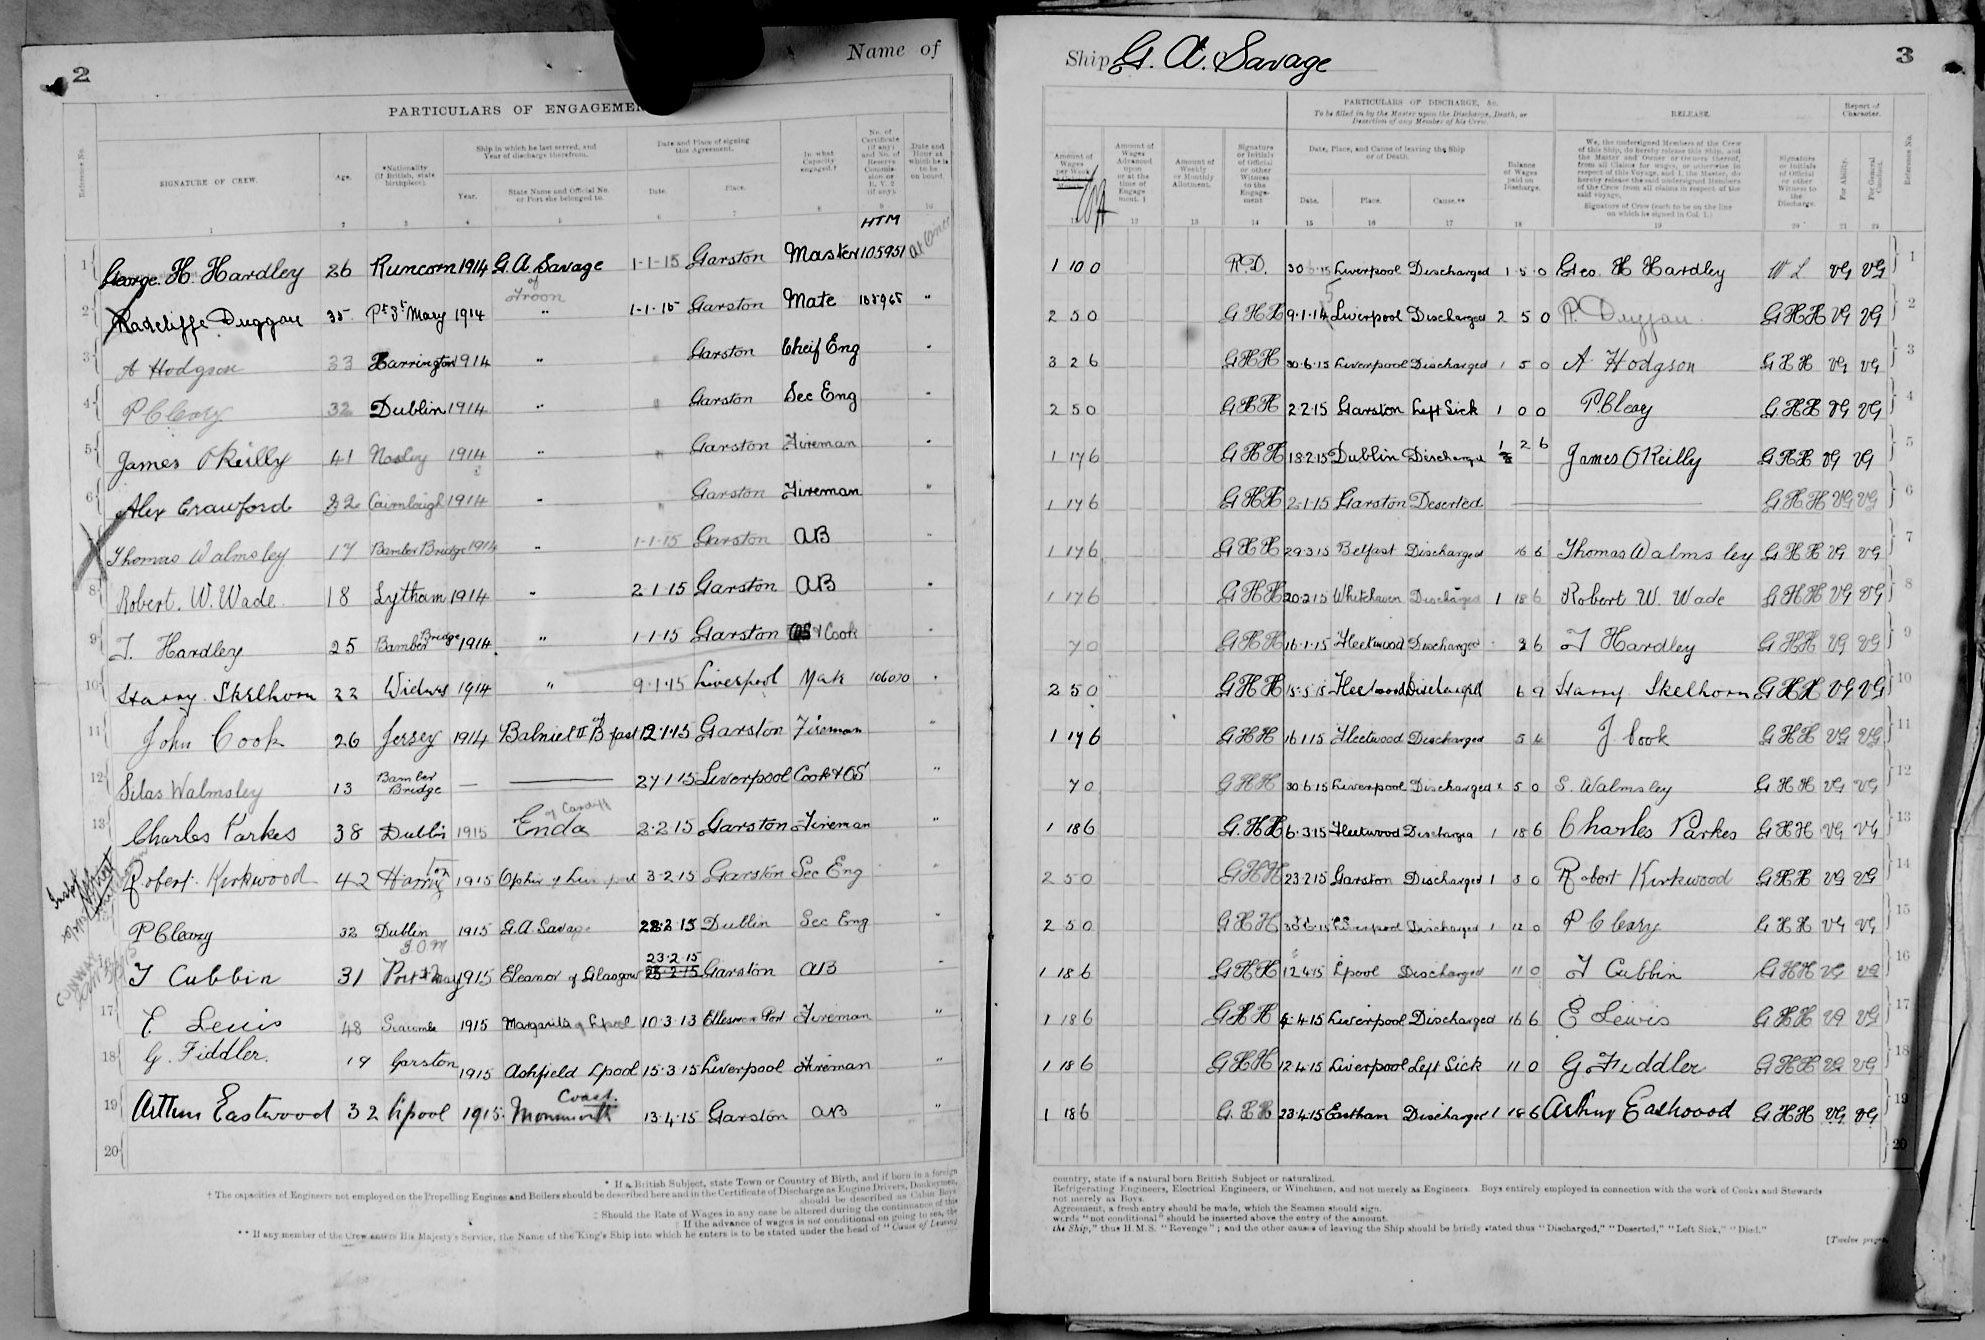 2
Name of
PARTICULARS OF ENGAGEMEN
Reference No.
SIGNATURE OF CREW.
Age.
*Nationality (If British, state birthplace).
Ship in which he last served, and Year of discharge therefrom.
Year.
State Name and Official No. or Port she belonged to.
Date and Place of signing this Agreement.
Date.
Place.
In what Capacity engaged.†
No. of Certificate (if any) and No. of Reserve Commission or R.V. 2 (if any).
Date and Hour at which he is to be on board.
1 2 3 4 5 6 7 8 9 10
HTM
1 George. H. Hardley 26 Runcorn 1914 G. A. Savage of Troon 1-1-15 Garston Master 105951 at Once
2 Radcliffe Duggan 35 Pt St Mary 1914 " 1-1-15 Garston Mate 105965 "
3 A Hodgson 33 Harrington 1914 " Garston Cheif Eng "
4 P Cleary 32 Dublin 1914 " Garston Sec Eng "
5 James O'Reilly 41 1914 " Garston Fireman "
6 Alex Crawford 22 Cairnlough 1914 " Garston Fireman "
7 Thomas Walmsley 17 Bamber Bridge 1914 " 1-1-15 Garston AB "
8 Robert. W. Wade 18 Lytham 1914 " 2-1-15 Garston AB "
9 T. Hardley 25 Bamber Bridge 1914 " 1-1-15 Garston OS & Cook "
10 Harry Skelhorn 22 Widnes 1914 " 9-1-15 Liverpool Mate 106070 "
11 John Cook 26 Jersey 1914 Balniel II of B fast 12-1-15 Garston Fireman "
12 Silas Walmsley 13 Bamber Bridge — — 27 1 15 Liverpool Cook & OS "
13 Charles Parkes 38 Dublin 1915 Enda of Cardiff 2-2-15 Garston Fireman "
14 Robert Kirkwood 42 1915 Ophir of Liverpool 3-2-15 Garston Sec Eng "
15 P Cleary 32 Dublin 1915 G. A. Savage 22-2-15 Dublin Sec Eng "
16 T Cubbin 31 Port St Mary I.O.M 1915 Eleanor of Glasgow 23.2.15 Garston AB
17 E. Lewis 48 Seacombe 1915 Margarita of Lpool 10-3-13 Ellesmere Port Fireman "
18 G. Fiddler. 19 Garston 1915 Ashfield Lpool 15-3-15 Liverpool Fireman "
19 Arthur Eastwood 32 Lpool 1915 Monmouth Coast. 13-4-15 Garston AB "
20
* If a British Subject, state Town or Country of Birth, and if born in a foreign
† The capacities of Engineers not employed on the Propelling Engines and Boilers should be described here and in the Certificate of Discharge as Engine Drivers, Donkeymen,
should be described as Cabin Boys
‡ Should the Rate of Wages in any case be altered during the continuance of this
If the advance of wages is not conditional on going to sea, the
** If any member of the Crew enters His Majesty's Service, the Name of the King's Ship into which he enters is to be stated under the head of "Cause of Leaving
Ship G. A. Savage
3
Amount of Wages per Week
Amount of Wages Advanced upon or at the time of Engagement. ‡
Amount of Weekly or Monthly Allotment.
Signature or Initials of Official or other Witness to the Engagement
PARTICULARS OF DISCHARGE, &c.
To be filled in by the Master upon the Discharge, Death, or Desertion of any Member of his Crew.
Date, Place, and Cause of leaving the Ship or of Death.
Date.
Place.
Cause.**
Balance of Wages paid on Discharge.
RELEASE.
We, the undersigned Members of the Crew of this Ship, do hereby release this Ship, and the Master and Owner or Owners thereof, from all Claims for wages, or otherwise in respect of this Voyage, and I, the Master, do hereby release the said undersigned Members of the Crew from all claims in respect of the said voyage.
Signature of Crew (each to be on the line on which he signed in Col. 1.)
Signature or Initials of Official or other Witness to the Discharge.
Report of Character.
For Ability.
For General Conduct.
Reference No.
12 13 14 15 16 17 18 19 20 21 22
1 10 0 R D. 30 6 15 Liverpool Discharged 1 5 0 Geo. H Hardley W L VG VG 1
2 5 0 GHH 9-1-15 Liverpool Discharged 2 5 0 R. Duggan GHH VG VG 2
3 2 6 GHH 30-6-15 Liverpool Discharged 1 5 0 A Hodgson GHH VG VG 3
2 5 0 GHH 2 2 15 Garston Left Sick 1 0 0 P Cleary GHH VG VG 4
1 17 6 GHH 18 2 15 Dublin Discharged 1 2 6 James O'Reilly GHH VG VG 5
1 17 6 GHH 2-1-15 Garston Deserted — GHH VG VG 6
1 17 6 GHH 29 3 15 Belfast Discharged 16 6 Thomas Walmsley GHH VG VG 7
1 17 6 GHH 20 2 15 Whitehaven Discharged 1 18 6 Robert W. Wade GHH VG VG 8
7 0 GHH 16-1-15 Fleetwood Discharged 3 6 T Hardley GHH VG VG 9
2 5 0 GHH 15-5-15 Fleetwood Discharged 6 9 Harry Skelhorn GHH VG VG 10
1 17 6 GHH 16 1 15 Fleetwood Discharged 5 4 J Cook GHH VG VG 11
7 0 GHH 30 6 15 Liverpool Discharged 5 0 S. Walmsley GHH VG VG 12
1 18 6 GHH 6-3-15 Fleetwood Discharged 1 18 6 Charles Parkes GHH VG VG 13
2 5 0 GHH 23 2 15 Garston Discharged 1 5 0 Robert Kirkwood GHH VG VG 14
2 5 0 GHH 30 6 15 Liverpool Discharged 1 12 0 P Cleary GHH VG VG 15
1 18 6 GHH 12 4 15 Lpool Discharged 11 0 T Cubbin GHH VG VG 16
1 18 6 GHH 4-15 Liverpool Discharged 16 6 E Lewis GHH VG VG 17
1 18 6 GHH 12 4 15 Liverpool Left Sick 11 0 G. Fiddler GHH VG VG 18
1 18 6 GHH 23 4 15 Eastham Discharged 1 18 6 Arthur Eastwood GHH VG VG 19
20
country, state if a natural born British Subject or naturalized.
Refrigerating Engineers, Electrical Engineers, or Winchmen, and not merely as Engineers. Boys entirely employed in connection with the work of Cooks and Stewards
not merely as Boys.
Agreement, a fresh entry should be made, which the Seamen should sign.
words "not conditional" should be inserted above the entry of the amount.
the Ship," thus H.M.S. "Revenge"; and the other causes of leaving the Ship should be briefly stated thus "Discharged," "Deserted," "Left Sick," "Died."
[Twelve pages